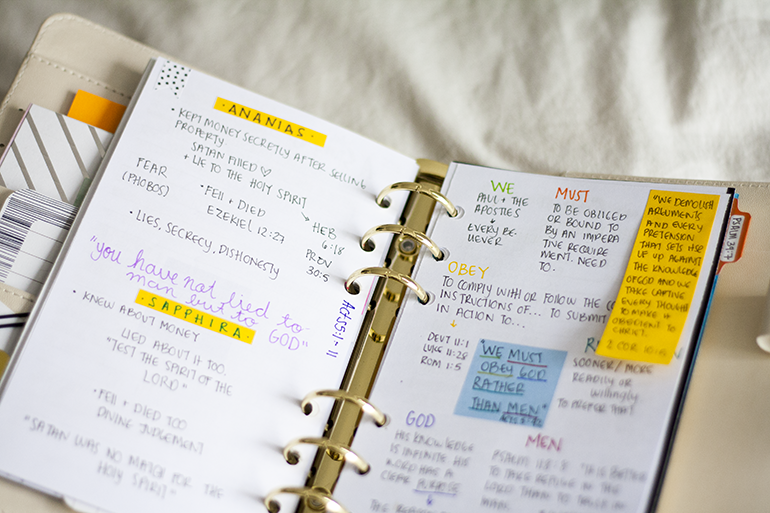 ANANIAS
• KEPT MONEY SECRETLY AFTER SELLING
PROPERTY
SATAN FILLED ♡
+ LIE TO THE HOLY SPIRIT
FEAR
(PHOBOS)
• FELL + DIED
EZEKIEL 12:27
HEB
6:18
PROV
30:5
• LIES, SECRECY, DISHONESTY
"you have not lied to
man but to GOD"
ACTS 5:1-11
SAPPHIRA
• KNEW ABOUT MONEY
LIED ABOUT IT TOO.
"TEST THE SPIRIT OF THE
LORD"
• FELL + DIED TOO
DIVINE JUDGEMENT
"SATAN WAS NO MATCH FOR THE
HOLY SPIRIT"
WE
PAUL + THE
APOSTLES
↓
EVERY BE-
LIEVER
MUST
TO BE OBLIGED
OR BOUND TO
BY AN IMPERA
TIVE REQUIRE
MENT. NEED
TO..
"WE DEMOLISH
ARGUMENTS
AND EVERY
PRETENSION
THAT SETS ITSELF
UP UP AGAINST
THE KNOWLEDGE
OF GOD AND WE
TAKE CAPTIVE
EVERY THOUGHT
TO MAKE IT
OBEDIENT TO
CHRIST."
2 COR 10:5
PSALM 34:7
OBEY
TO COMPLY WITH OR FOLLOW THE
INSTRUCTIONS OF... TO SUBMIT
IN ACTION TO...
DEUT 11:1
LUKE 11:28
ROM 1:5
WE MUST
OBEY GOD
RATHER
THAN MEN"
SOONER/MORE
READILY OR
WILLINGLY
TO PREFER THAT
GOD
HIS KNOWLEDGE
IS INFINITE HIS
WORD HAS A
CLEAR PURPOSE
MEN
PSALM 118:8 "IT IS BETTER
TO TAKE REFUGE IN THE
LORD THAN TO